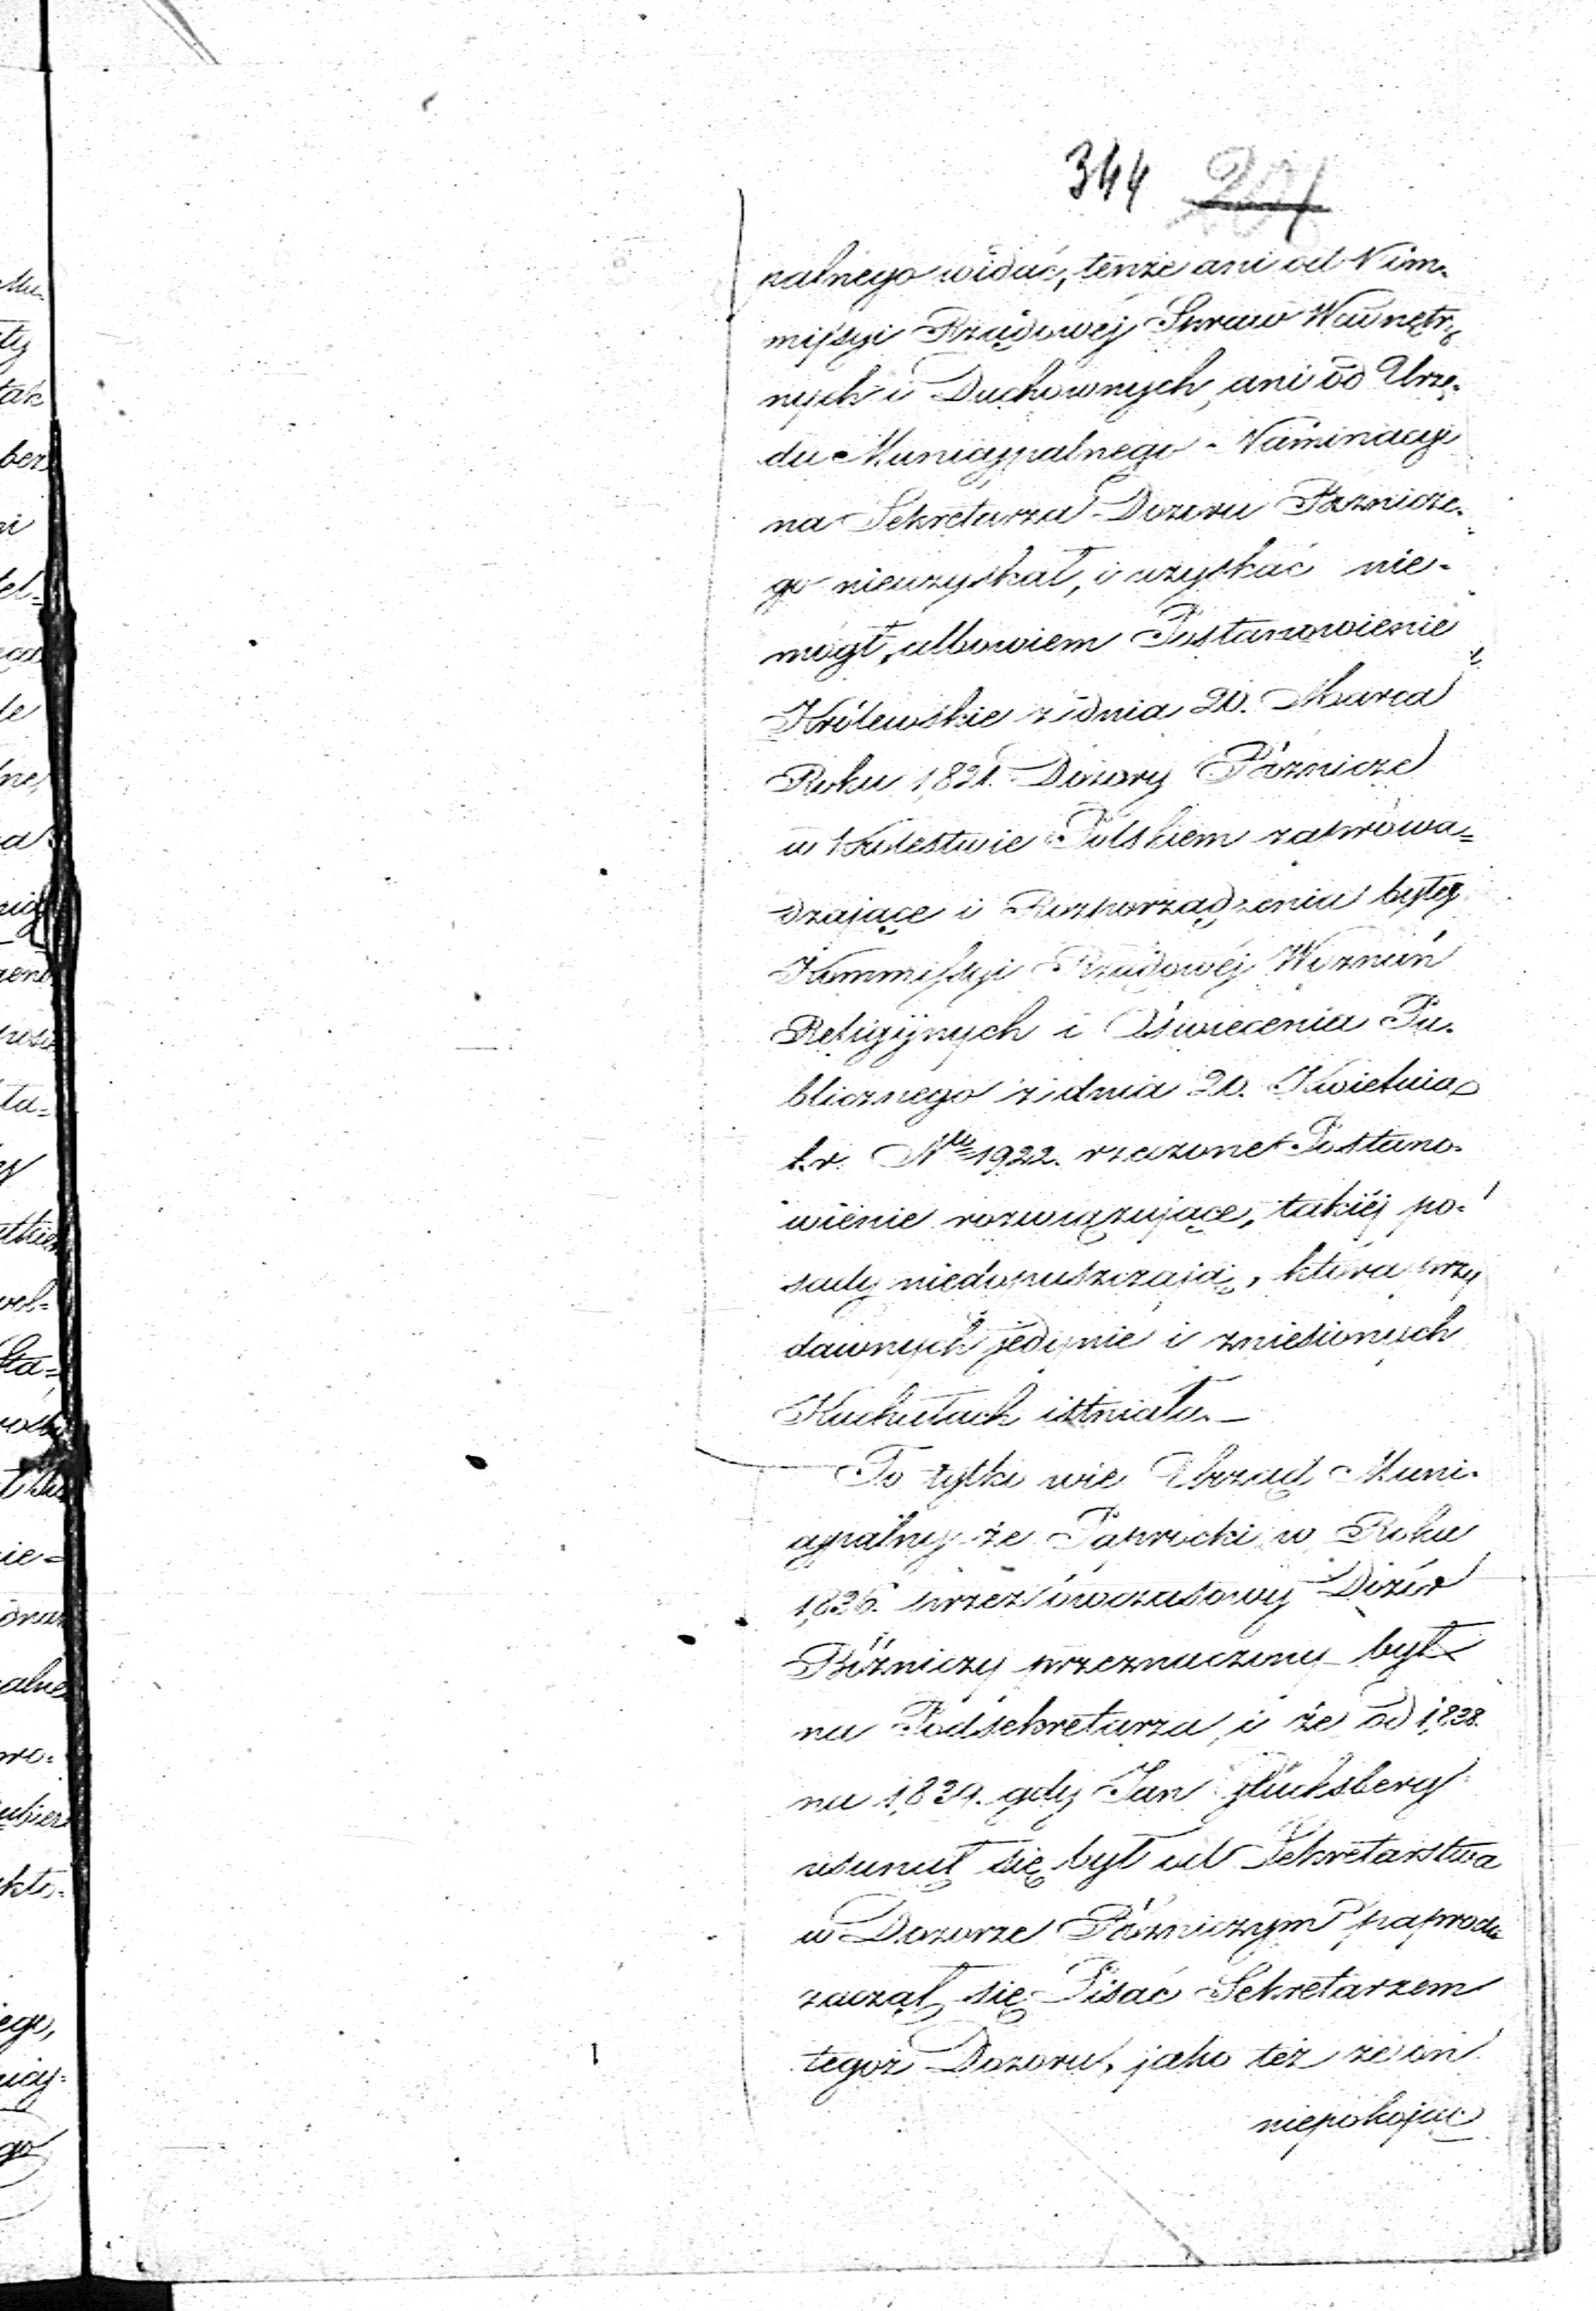 344 201
kalnego widać, tenże ani od Kom-
missyi Rządowéj Spraw Wewnętrz
nych i Duchownych, ani od Urzę-
du Municypalnego - Nominacyi
na Sekretarza Dozoru Bóżnicze-
go nieuzyskał, i uzyskać nie-
mógł, albowiem Postanowienie
Królewskie z dnia 20. Marca
Roku 1821. Dozory Bóżnicze
w Królestwie Polskiem zaprowa=
dzające i Rozporządzenia byłéj
Kommissyi Rządowéj Wyznań
Religijnych i Oświecenia Pu-
blicznego z dnia 20. Kwietnia
t.r. Nro 1922. rzeczone Postano-
wienie rozwiązujące, takiéj po-
sady niedopuszczają, która przy
dawnych jedynie i zniesionych
Kachałach istniała.—
To tylko wie Urząd Muni-
cypalny że Paprocki w Roku
1836. przez ówczasowy Dozór
Bóżniczy przeznaczony był
na Podsekretarza, i że od 1838.
na 1839. gdy Jan Glücksberg
usunął się był od Sekretarstwa
w Dozorze Bóżniczym
zaczął się Pisać Sekretarzem
tegoż Dozoru, jako też że on
niepokojąc